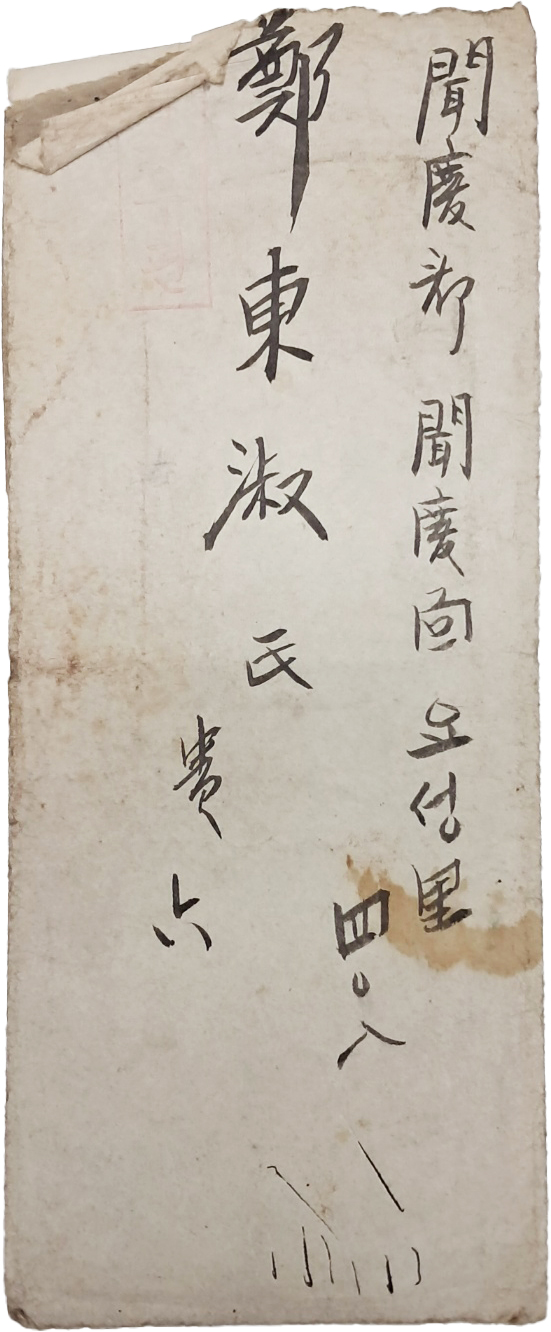 聞慶郡 聞慶面 요성里
四〇八
鄭東淑氏
貴下